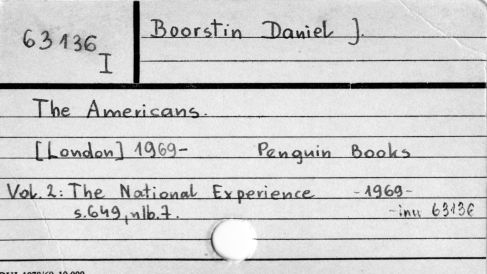 63136 I
Boorstin Daniel J.
The Americans.
[London] 1969- Penguin Books
Vol. 2: The National Experience -1969-
s.649, nlb.7. -inw 63136